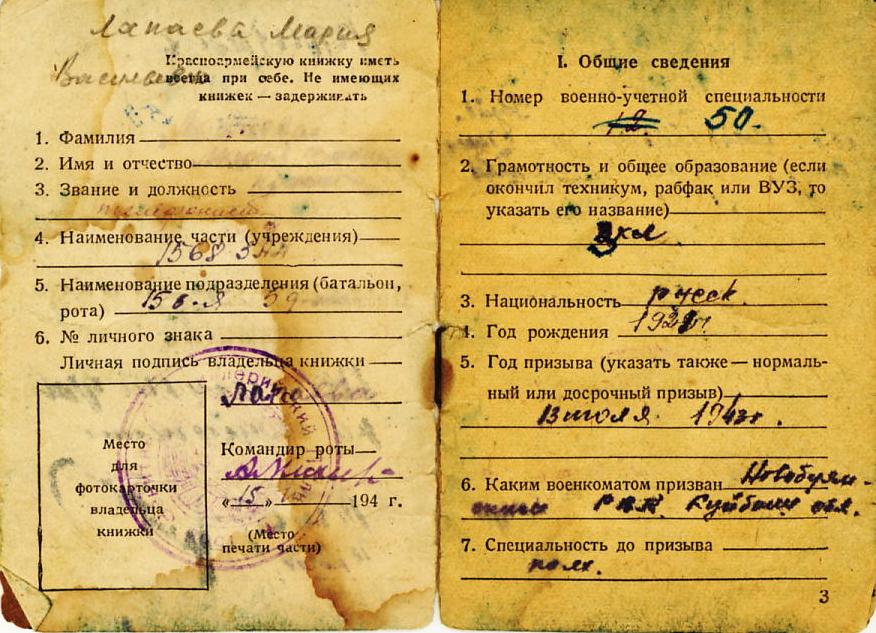 Лапаева Мария
Красноармейскую книжку иметь
всегда при себе. Не имеющих
книжек — задерживать
1. Фамилия
2. Имя и отчество
3. Звание и должность
4. Наименование части (учреждения)
1568
5. Наименование подразделения (батальон,
рота)
6. № личного знака
Личная подпись владельца книжки
Лапаева
Командир роты
« 15 » 194 г.
Место
для
фотокарточки
владельца
книжки
(Место
печати части)
I. Общие сведения
1. Номер военно-учетной специальности
12 50.
2. Грамотность и общее образование (если
окончил техникум, рабфак или ВУЗ, то
указать его название)
3 кл
3. Национальность русск.
4. Год рождения
5. Год призыва (указать также — нормаль-
ный или досрочный призыв)
июля
6. Каким военкоматом призван Новобуян-
РВК Куйбыш обл.
7. Специальность до призыва
3